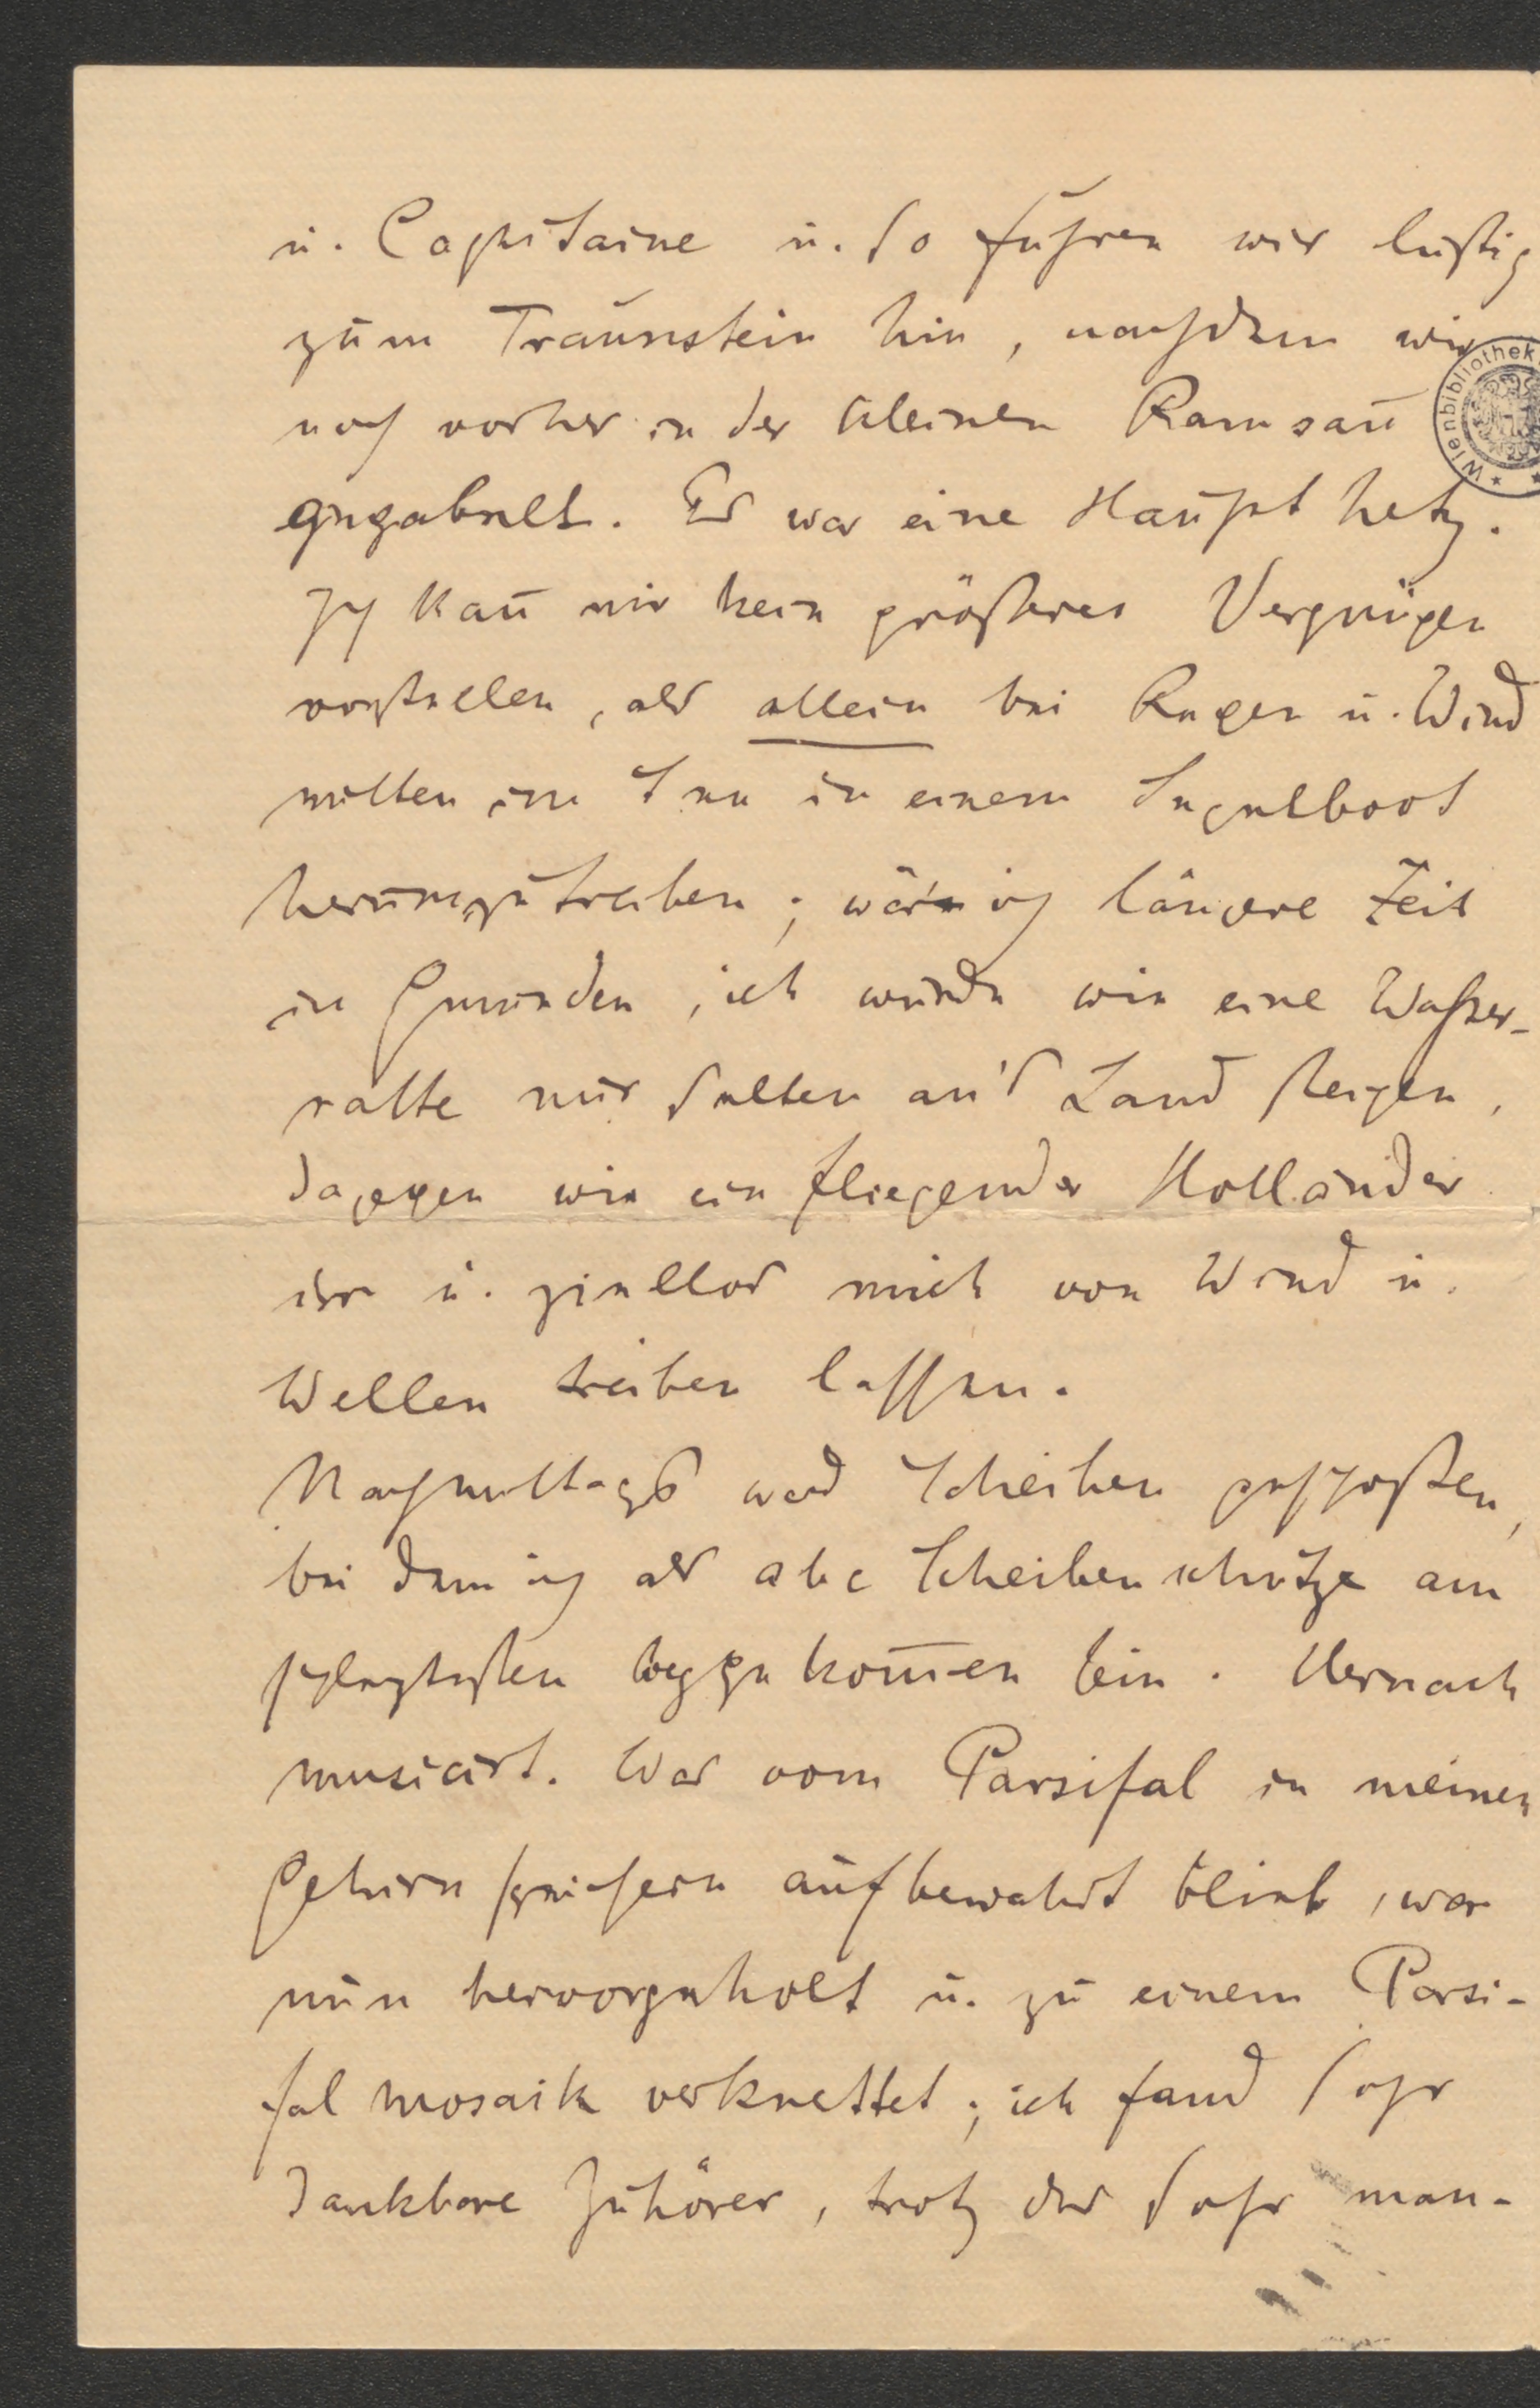 u. Capitaine u. so fuhren wir lustig
zum Traunstein hin, nachdem wir
noch vorher in der kleinen Ramsau
gegabelt. Es war eine Haupt hetz.
Ich kañ mir kein größeres Vergnügen
vorstellen, als allein bei Regen u. Wind
mitten im See in einem Segelboot
herumzutreiben; wär' ich längere Zeit
in Gmunden, ich würde wie eine Wasser-
ratte nur selten an's Land steigen,
dagegen wie ein fliegender Holländer
irr u. ziellos mich von Wind u.
Wellen treiben lassen.
Nachmittags ward Scheiben geschoßen,
bei dem ich als abc Scheibenschütze am
schlechtesten weggekom̄en bin. Hernach
musicirt. Was vom Parsifal in meinen
Gehirn speichern aufbewahrt blieb, war
nun hervorgeholt u. zu einem Parsi-
fal mosaik verknettet; ich fand sehr
dankbare Zuhörer, trotz der sehr man-
Wienbibliothek